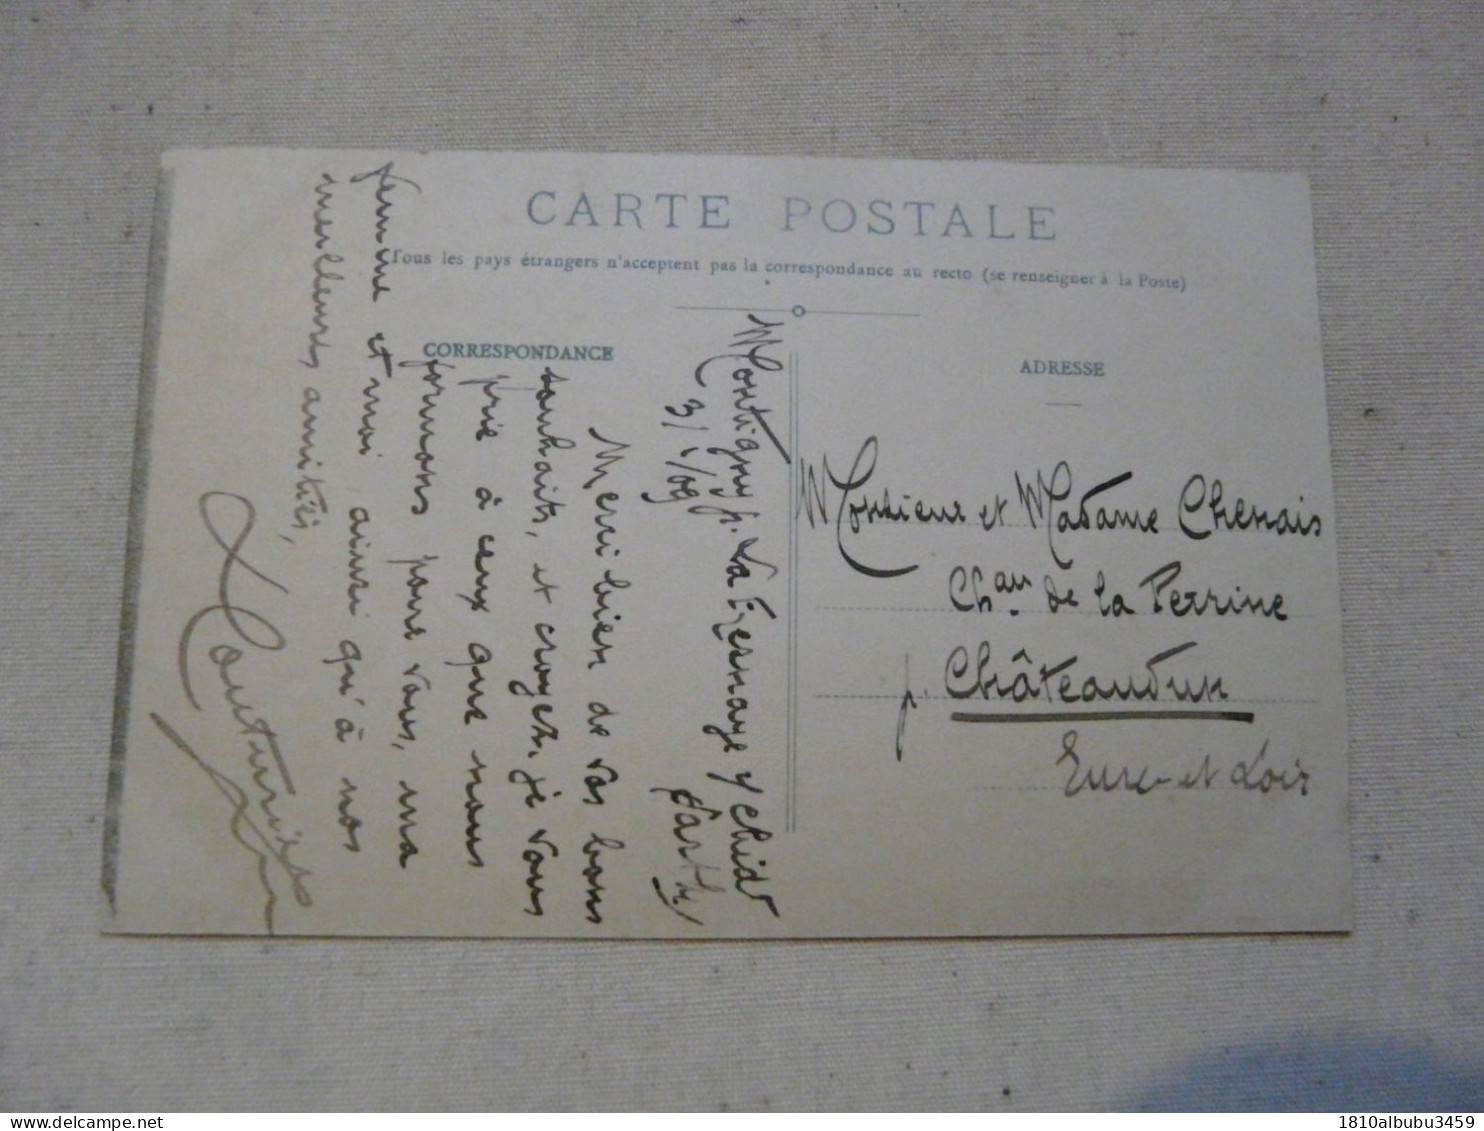 CARTE POSTALE
Tous les pays étrangers n'acceptent pas la correspondance au recto (se renseigner à la Poste)
CORRESPONDANCE
Montigny p. La Fresnaye s/ Chéd
Sarthe
3/1/09
Merci bien de vos bons
souhaits, et croyez, je vous
prie à ceux que nous
formons pour vous, ma
femme et moi, ainsi qu'à nos
meilleures amitiés,
ADRESSE
Monsieur et Madame Chenais
Chau. de la Perrine
p. Châteaudun
Eure-et-Loir
1810albubu3459